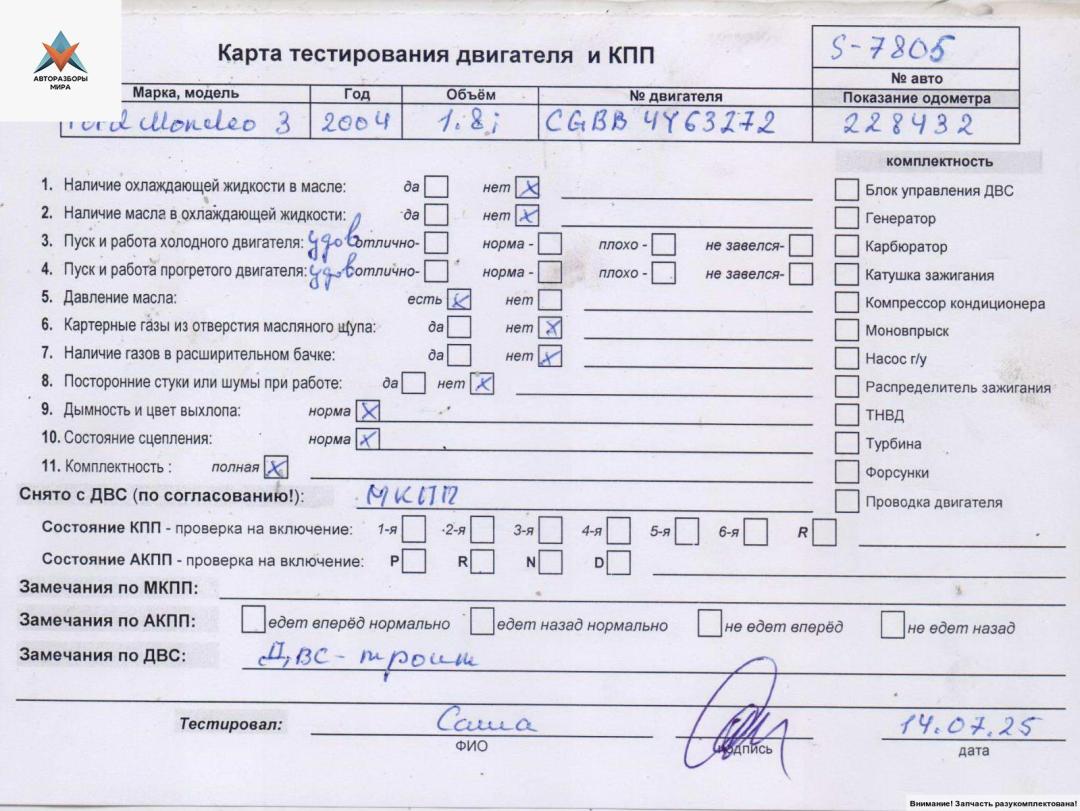 АВТОРАЗБОРЫ
МИРА
Карта тестирования двигателя и КПП
S-7805
№ авто
Марка, модель Год Объём № двигателя Показание одометра
Ford Mondeo 3 2004 1.8i CGBB 4Y63272 228432
комплектность
1. Наличие охлаждающей жидкости в масле: да нет X
Блок управления ДВС
2. Наличие масла в охлаждающей жидкости: да нет X
Генератор
3. Пуск и работа холодного двигателя: удов отлично- норма - плохо - не завелся-
Карбюратор
4. Пуск и работа прогретого двигателя: удов отлично- норма - плохо - не завелся-
Катушка зажигания
5. Давление масла: есть X нет
Компрессор кондиционера
6. Картерные газы из отверстия масляного щупа: да нет X
Моновпрыск
7. Наличие газов в расширительном бачке: да нет X
Насос г/у
8. Посторонние стуки или шумы при работе: да нет X
Распределитель зажигания
9. Дымность и цвет выхлопа: норма X
ТНВД
10. Состояние сцепления: норма X
Турбина
11. Комплектность : полная X
Форсунки
Снято с ДВС (по согласованию!): МКПП
Проводка двигателя
Состояние КПП - проверка на включение: 1-я -2-я 3-я 4-я 5-я 6-я R
Состояние АКПП - проверка на включение: P R N D
Замечания по МКПП:
Замечания по АКПП: едет вперёд нормально едет назад нормально не едет вперёд не едет назад
Замечания по ДВС: ДВС - троит
Тестировал: Саша 14.07.25
ФИО подпись дата
Внимание! Запчасть разукомплектована!